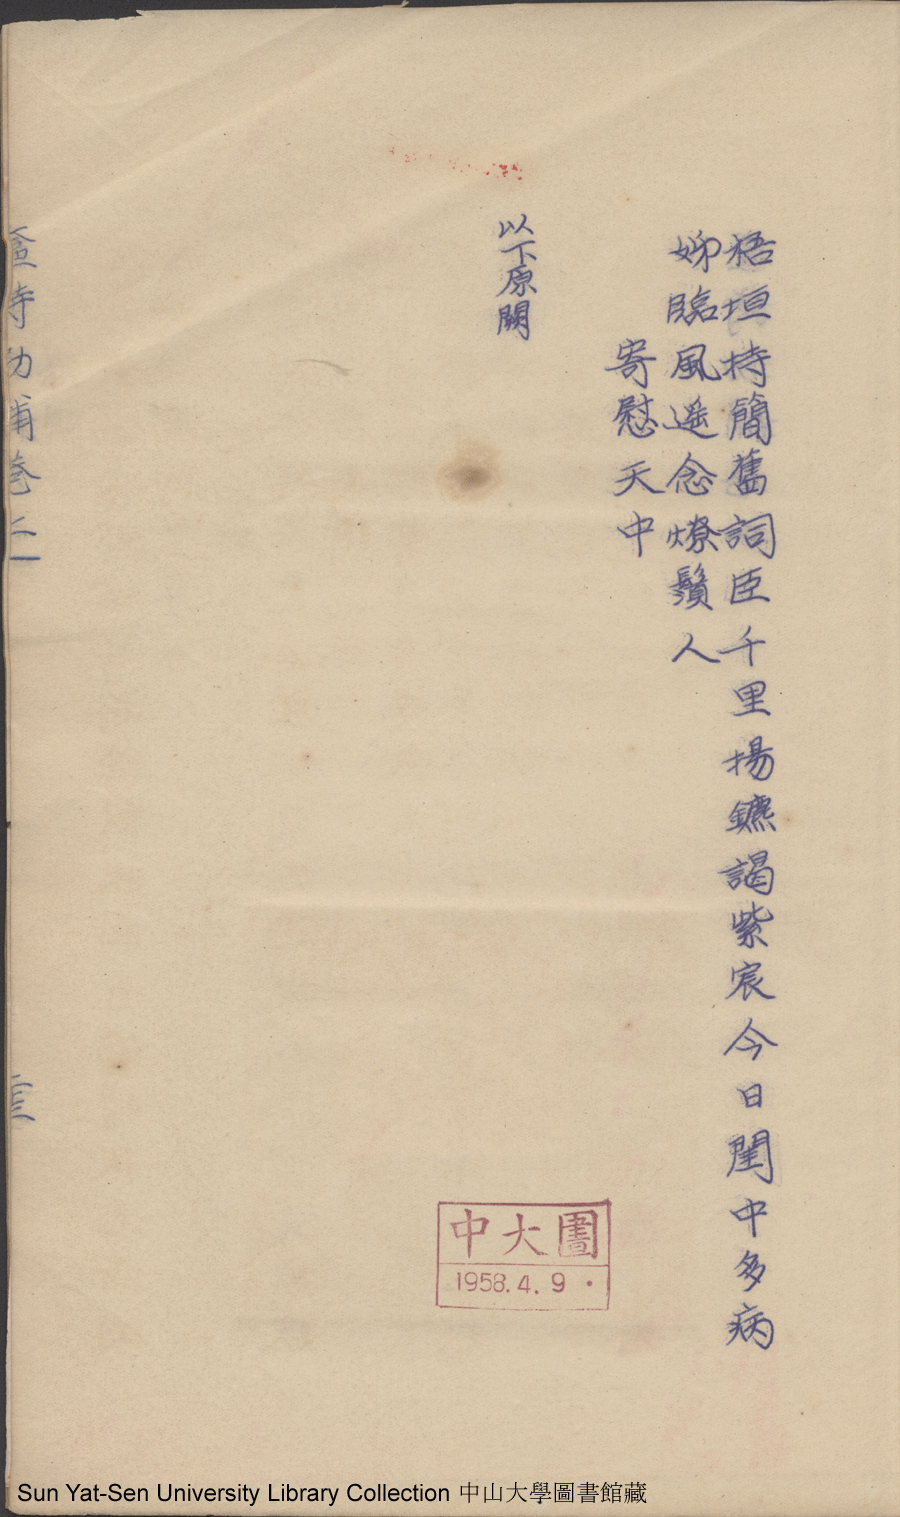 梧垣持簡舊詞臣千里揚鑣謁紫宸今日閨中多病
姊臨風遥念燎鬚人
寄慰天中
以下原闕
中大圖
1958.4.9
Sun Yat-Sen University Library Collection 中山大學圖書館藏